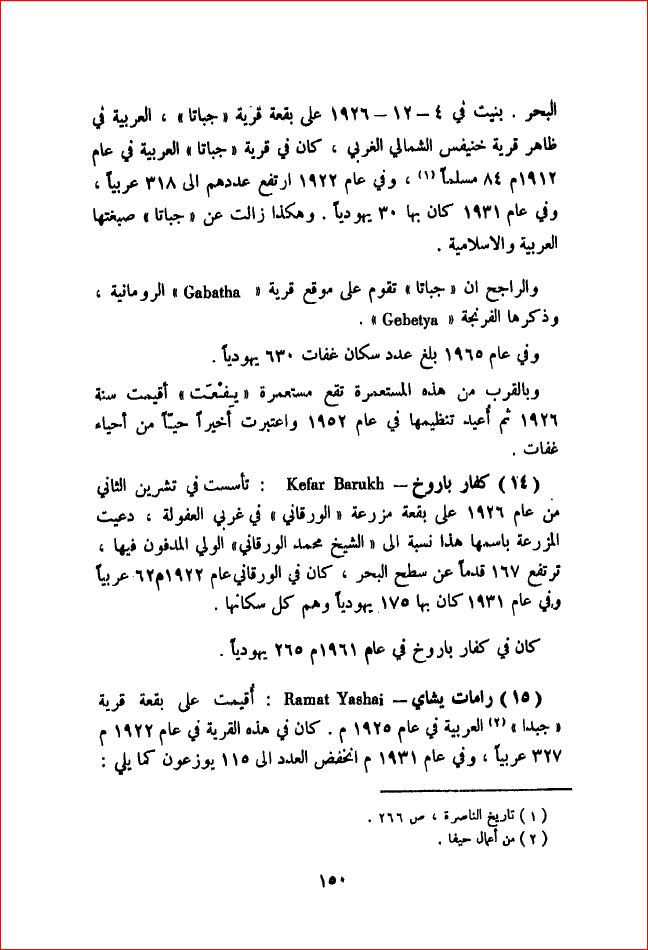 البحر . بنيت في ٤ – ١٢ – ١٩٢٦ على بقعة قرية « جباتا » ، العربية في
ظاهر قرية خنيفس الشمالي الغربي ، كان في قرية « جباتا » العربية في عام
١٩١٢م ٨٤ مسلماً (١) ، وفي عام ١٩٢٢ ارتفع عددهم الى ٣١٨ عربياً ،
وفي عام ١٩٣١ كان بها ٣٠ يهودياً . وهكذا زالت عن « جباتا » صبغتها
العربية والاسلامية .
والراجح ان « جباتا » تقوم على موقع قرية « Gabatha » الرومانية ،
وذكرها الفرنجة « Gebetya » .
وفي عام ١٩٦٥ بلغ عدد سكان غفات ٦٣٠ يهودياً .
وبالقرب من هذه المستعمرة تقع مستعمرة « يـِفـْعـَت » أقيمت سنة
١٩٢٦ ثم أُعيد تنظيمها في عام ١٩٥٢ واعتبرت أخيراً حيـّاً من أحياء
غفات .
( ١٤ ) كفار باروخ – Kefar Barukh : تأسست في تشرين الثاني
من عام ١٩٢٦ على بقعة مزرعة « الورقاني » في غربي العفولة ، دعيت
المزرعة باسمها هذا نسبة الى « الشيخ محمد الورقاني» الولي المدفون فيها ،
ترتفع ١٦٧ قدماً عن سطح البحر ، كان في الورقاني عام ١٩٢٢م٦٢ عربياً
وفي عام ١٩٣١ كان بها ١٧٥ يهودياً وهم كل سكانها .
كان في كفار باروخ في عام ١٩٦١م ٢٦٥ يهودياً .
( ١٥ ) رامات يشاي – Ramat Yashai : أُقيمت على بقعة قرية
« جيدا » (٢) العربية في عام ١٩٢٥ م . كان في هذه القرية في عام ١٩٢٢ م
٣٢٧ عربياً ، وفي عام ١٩٣١ م انخفض العدد الى ١١٥ يوزعون كما يلي :
( ١ ) تاريخ الناصرة ، ص ٢٦٦ .
( ٢ ) من أعمال حيفا .
١٥٠